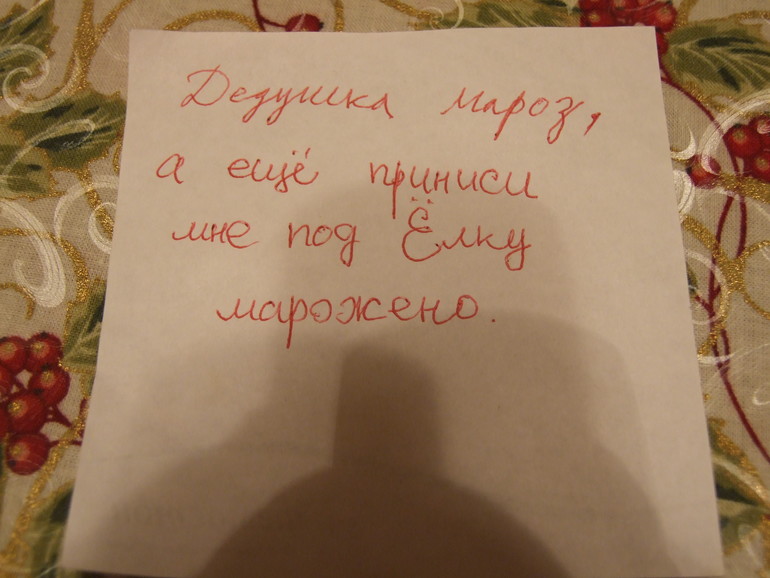 Дедушка мароз,
а ещё приниси
мне под Ёлку
марожено.